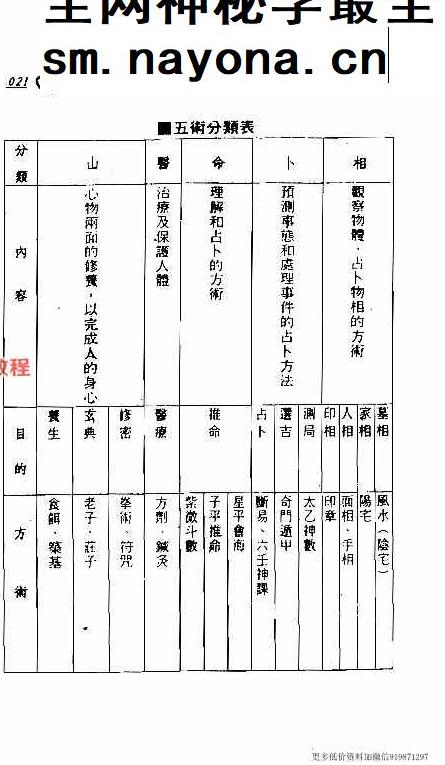 全网神秘学最全
sm.nayona.cn
021
■五術分類表
分類 山 醫 命 卜 相
內容
心物兩面的修養，以完成人的身心
治療及保護人體
理解和占卜的方術
預測事態和處理事件的占卜方法
觀察物體、占卜物相的方術
教程
目的
養生 玄典 修密 醫療 推命 占卜 選吉 測局 印相 人相 家相 墓相
方術
食餌、築基
老子、莊子
拳術、符咒
方劑、鍼灸
紫微斗數
子平推命
星平會海
斷易、六壬神課
奇門遁甲
太乙神數
印章
面相、手相
陽宅
風水（陰宅）
更多低价资料加微信919871297